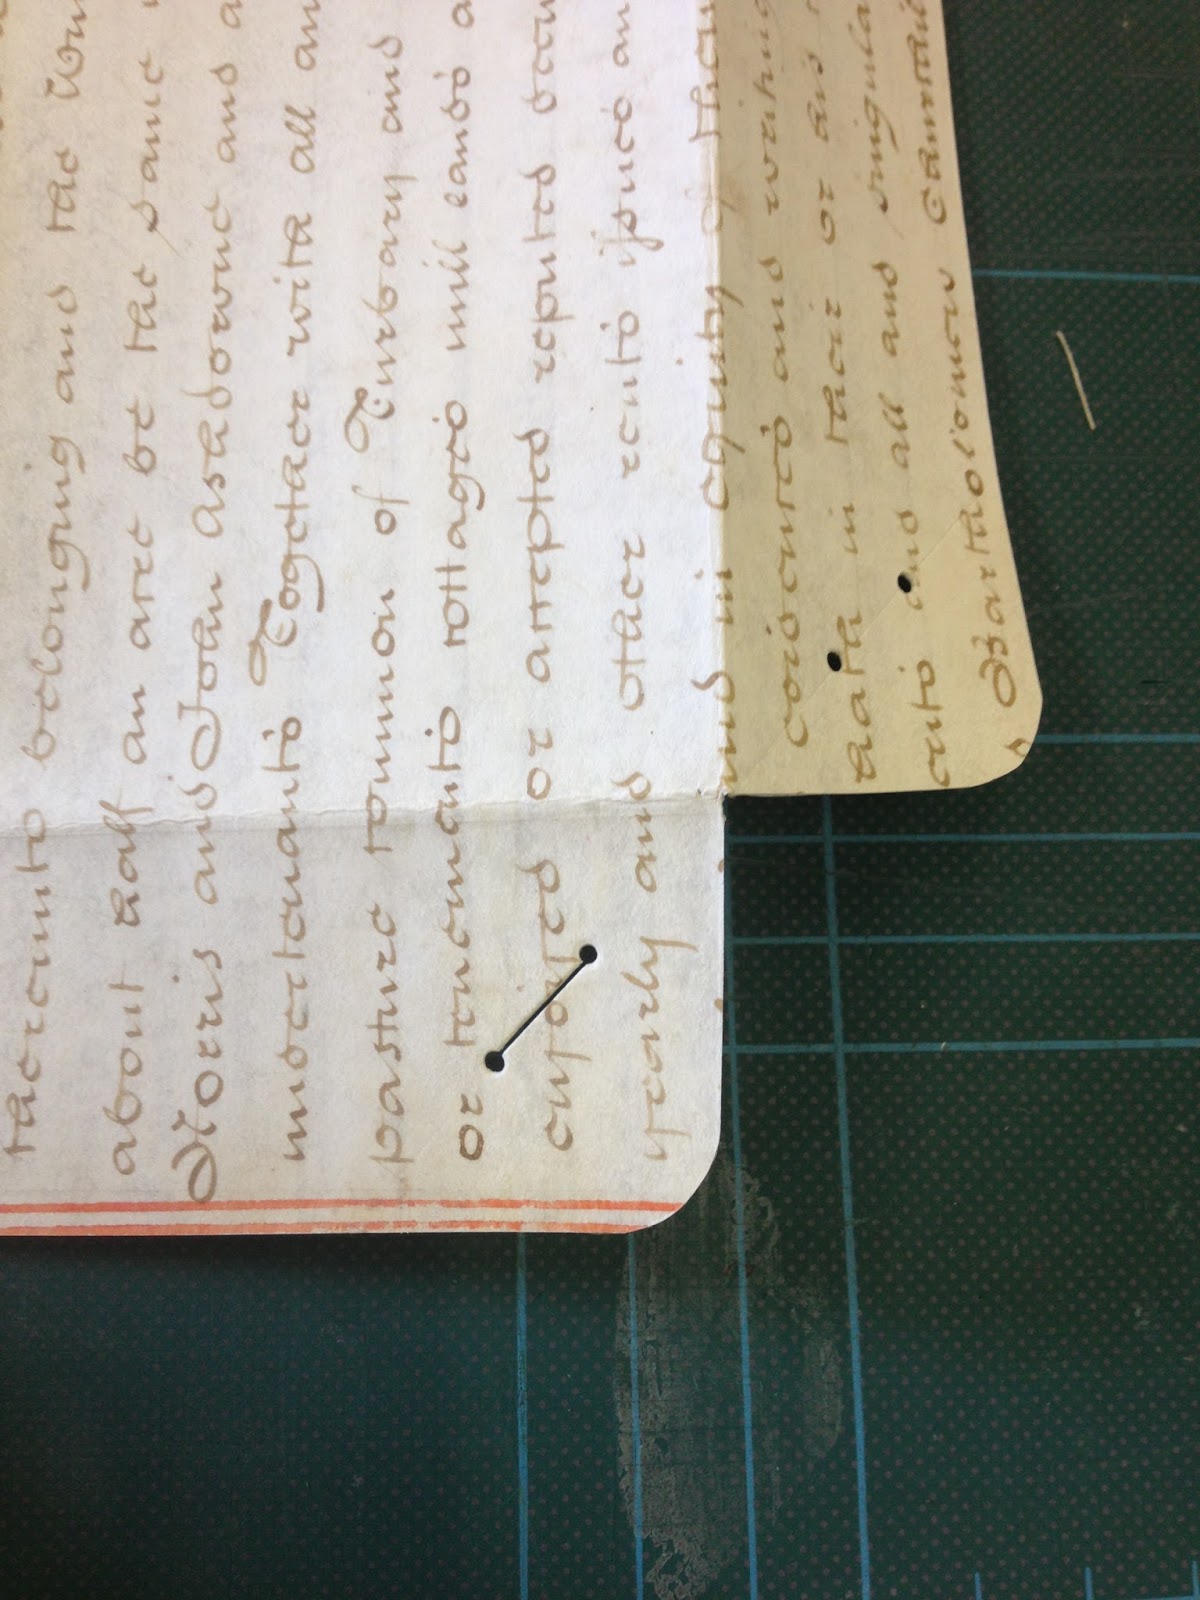 thereunto belonging and the
about half an acre be the same
Norris and John Ashdowne and a
undertenants Together with all an
pasture common of Turbary and
or tenements cottages mill lands a
enjoyed or accepted reputed occu
yearly and other rents issues an
and in equity of
and writing
hath in their or his
ents and all and singula
Bartholomew